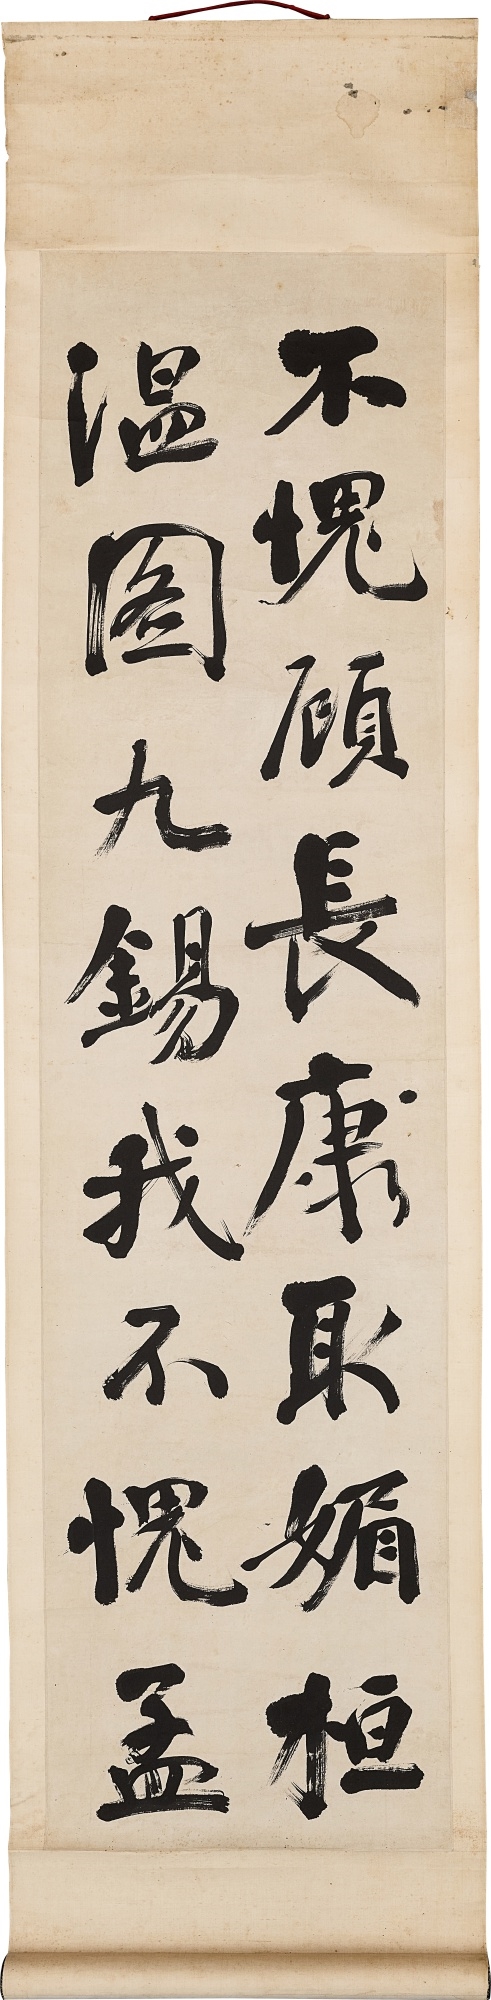 不愧顧長康取媚桓
温图九錫我不愧孟